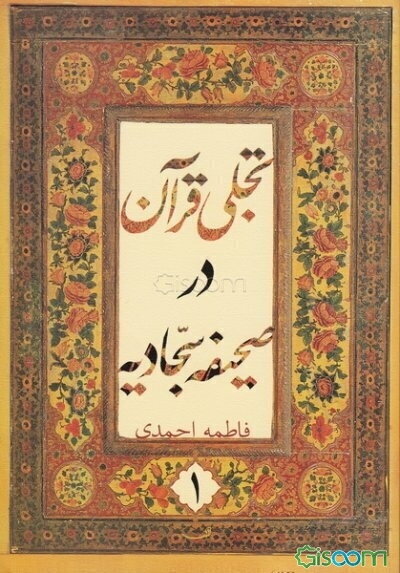 تجلی قرآن
در
صحیفه سجّادیه
فاطمه احمدی
۱
Gisoom
Gisoom